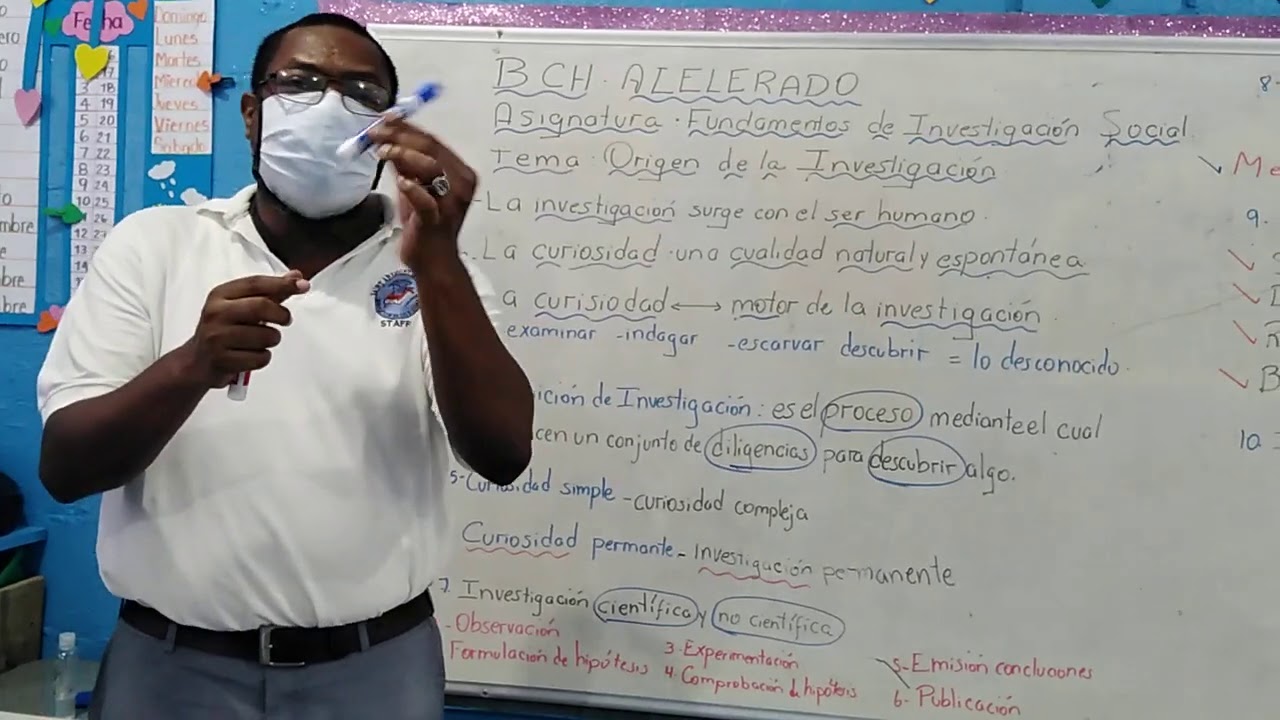 Fecha
Domingo
Lunes
Martes
Jueves
Viernes
Sabado
17
3 18
4 19
5 20
6 21
7 22
8 23
9 24
10 25
26
12
13
14
mbre
STAFF
BCH. ACELERADO
Asignatura. Fundamentos de Investigación Social
Tema. Origen de la Investigación
La investigación surge con el ser humano.
La curiosidad. una cualidad natural y espontánea
a curisiodad ⟷ motor de la investigación.
examinar -indagar -escarvar descubrir = lo desconocido.
ición de Investigación: es el proceso mediante el cual
cen un conjunto de diligencias para descubrir algo.
5- Curiosidad simple - curiosidad compleja
Curiosidad permante - investigación permanente
7. Investigación científica y no científica
- Observación
Formulación de hipótesis
3- Experimentación
4. Comprobación de hipótesis
5- Emisión conclusiones
6- Publicación
8
Me
9.
B
10